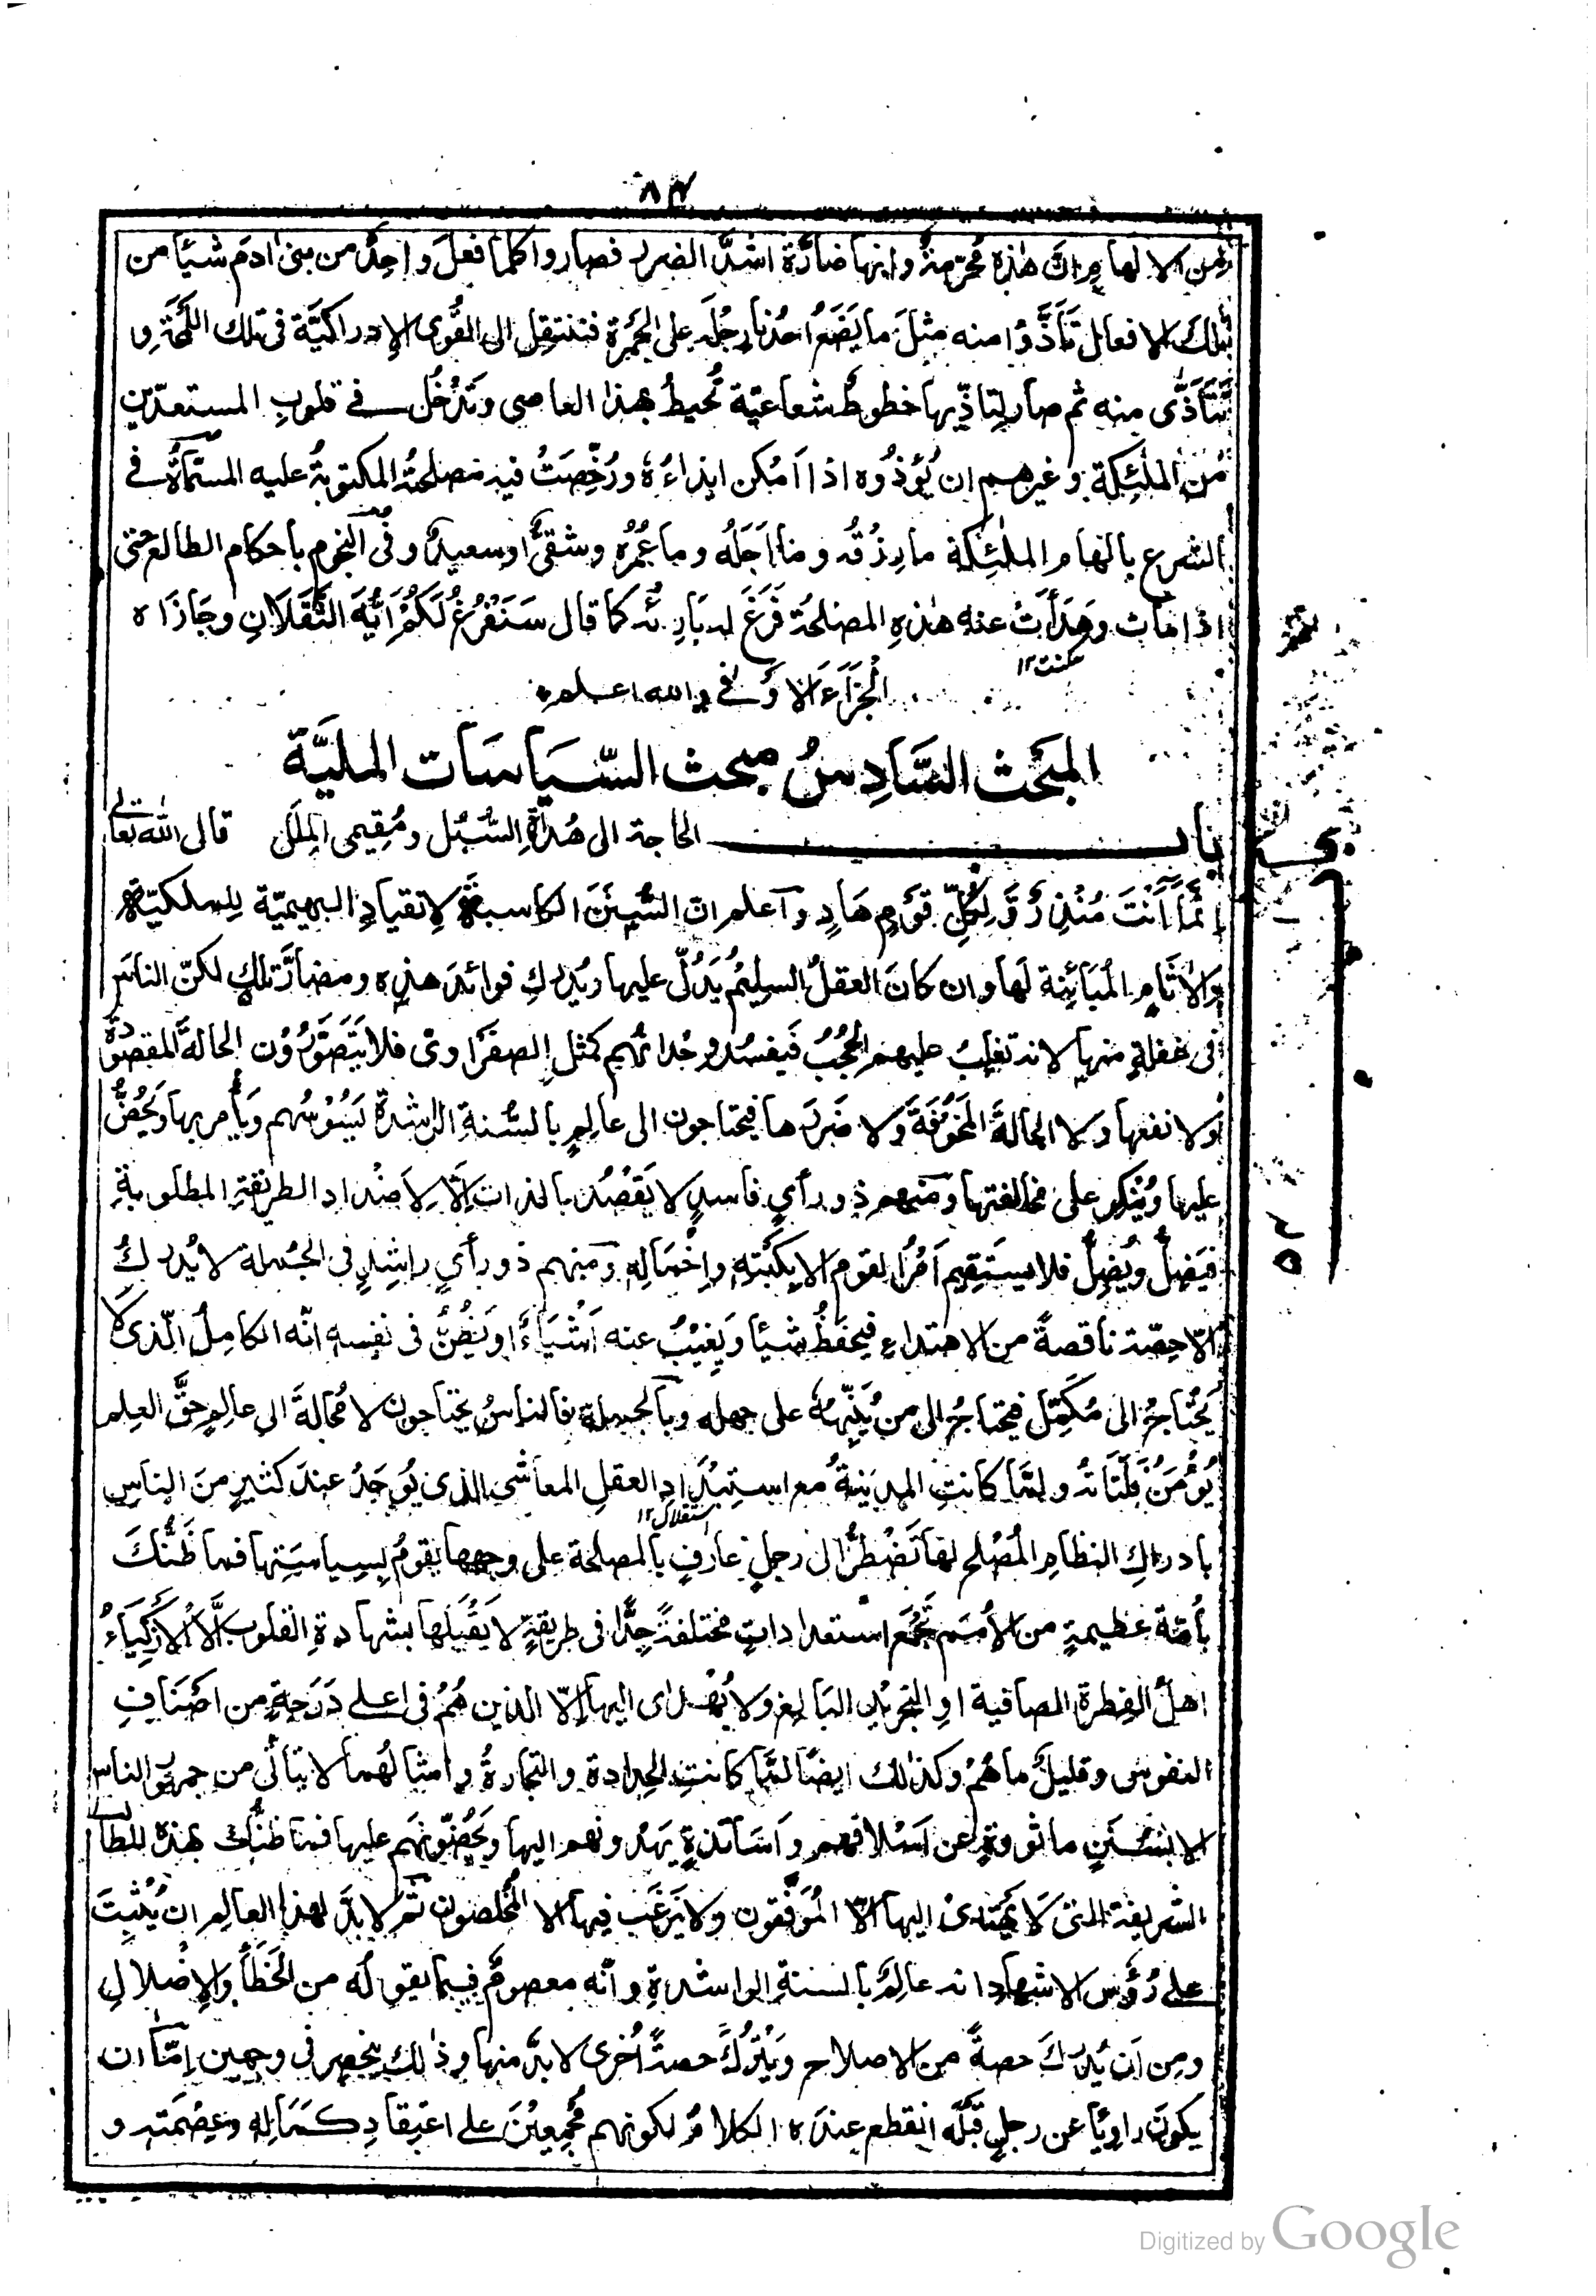 ٨٣
ومن الالهام ان هذه مُحَرّمةٌ وانها ضارّة اشدَّ الضرر فصاروا كلما فعل واحِدٌ من بنى ادم شيًا من
تلك الافعال تَأَذَّوْا منه مثلَ ما يَضَعُ احدُنا رِجْلَه على الجَمْرة فتنتقل الى القُوى الإدراكيّة فى تلك اللمحة و
تَتَأَذّى منه ثم صار لِتأذّيها خطوطٌ شعاعيّة تُحيطُ بهذا العاصى وتَدْخُل فے قلوبِ المستعدّين
من الملٰئكة وغيرهم ان يُؤذُوه اذا اَمْكن ايذاءُهٗ ورُخِّصَتْ فيه مصلحتُه المكتوبةُ عليه المسمّاةُ فے
الشرع بالهام الملٰئكة ما رِزْقُه وما اَجَلُه وما عُمْرُه وشقىٌّ او سعيدٌ وفى النجوم باحكام الطالع حتى
اذا مات وهَدَأَتْ عنه هٰذهِ المصلحة فَرَغَ له بَارِئُه كما قال سَنَفْرُغُ لَكُمْ اَيُّهَ الثَّقَلَانِ وجَازَاه
سكنت١٢
الْجَزَآءَ الاَوْفے والله اعلم
المبحَث السَّادِسُ مبحث السِّيَاسَات الملِيَّة
باب الحاجة الى هُداةِ السُّبُل ومُقِيمى المِلَل قال الله تعالٰے
اِنَّمَآ اَنْتَ مُنْذِرٌ وَّلِكُلِّ قَوْمٍ هَادٍ وآعلم انّ السُّنَنَ الكاسبة لِانقيادِ البهيميّة لِلملكيّة
والاٰثامِ المُبَائِنة لها وان كانَ العقلُ السليمُ يَدُلّ عليها ويُدرِك فوائدَ هذه ومضارَّ تلك لكنّ الناسَ
فى غفلةٍ منها لانه تغلبُ عليهم الحُجُبُ فيفسُد وِجْدانُهم كمثل الصفراوىّ فلا يَتَصَوَّرُوْن الحالةَ المقصودة
ولا نفعها ولا الحالةَ المَخُوْفَةَ ولا ضَرَرَها فيحتاجون الى عالِمٍ بالسُّنةِ الراشدة يَسُوْسُهم ويأمر بها ويَحُضُّ
عليها ويُنكِر على مخالفتها ومنهم ذو رأيٍ فاسدٍ لا يَقصُد بالذات الّا لِاَضْدادِ الطريقةِ المطلوبةِ
فيَضِلُّ ويُضِلُّ فلا يستقيم اَمْرُ القوم الا بِكَبْتِه واِخْمَالِه ومنهم ذو رأيٍ راشِدٍ فى الجُملة لا يُدرِكُ
الّا حِصّة ناقصةً من الاهتداءِ فيحفظُ شيئا ويَغِيْبُ عنه اَشْيَآءُ او يَظُنُّ فى نفسه انّه الكاملُ الّذى لَا
يَحْتاجُ الى مُكَمِّلٍ فيحتاجُ الى من يُنَبِّهُهٗ على جهله وبآلجملة فالناسُ يحتاجون لا مُحالةَ الى عالِمٍ حَقَّ العِلمِ
يُؤْمَنُ فَلَتَاتُه ولمّا كانتِ المدينةُ مع استِبْدَادِ العقلِ المعاشى الذى يُوجَدُ عندَ كثيرٍ منَ الناسِ
استقلال١٢
بادراكِ النظامِ المُصْلح لها تَضْطَرُّ الى رجلٍ عارفٍ بالمصلحة على وجهها يَقومُ بسِياسَتِها فما ظنُّكَ
بأُمّةٍ عظيمةٍ من الاُمَم تَجْمَع استعداداتٍ مختلفةً جِدًّا فى طريقةٍ لا يَقْبَلها بشهادةِ القلوب الَّا الاَزْكِيَآءُ
اهلُ الفِطرة الصافية او التجريدِ البالِغ ولا يُهْدٰى اليها الّا الذين هُمْ فى اعلے دَرَجةٍ من اصْنَافِ
النفوس وقليلٌ ما هُمْ وكذٰلك ايضًا لمّا كانتِ الحِدادة والتجارةُ وامثالُهُما لا تتأتى من جمهور الناس
الا بسُنَنٍ ماثورةٍ عن اَسْلافهم واَسَاتذةٍ يَهْدونهم اليها ويَحُضّونَهم عليها فما ظنُّك بهذه المطالب
الشريفة التى لَا يَهْتدى اليها الا المُوَفَّقون ولا يَرْغَب فيها الا المُخلصون ثم لا بدَّ لهذا العالِم ان يُثْبِتَ
على رُؤُس الاشهاد انه عالِمٌ بالسنةِ الراشدةِ وانّه معصومٌ فيما يقوله من الخَطَأ والاِضْلالِ
ومِن اَن يُدرِكَ حصةً من الاصلاح ويَتْرُكَ حصةً اُخرى لا بدَّ منها وذٰلك ينحصر فى وجهين اِمّا ان
يكونَ راويًا عن رجلٍ قَبْلَه انقطع عنده الكلامُ لكونهم مُجْمِعِيْنَ علے اعتِقادِ كَمَالِه وعِصْمَته و
Digitized by Google